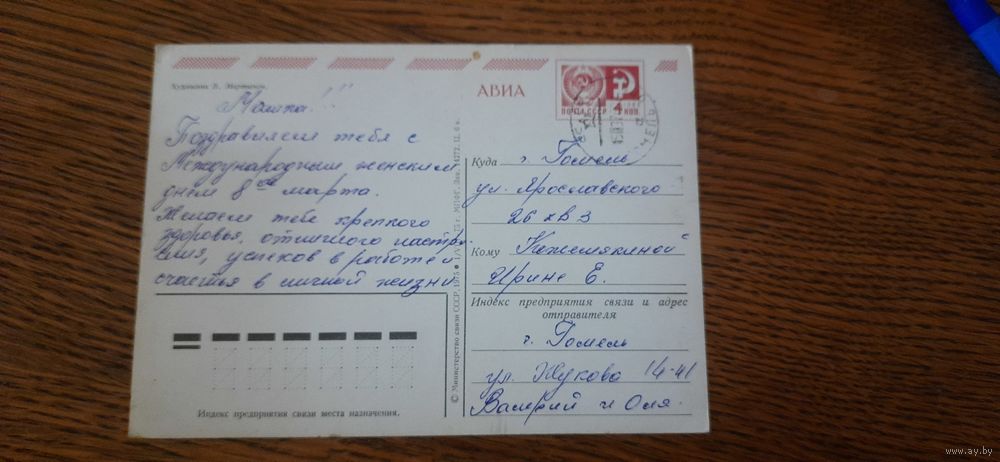 Художник В.
АВИА
ПОЧТА СССР 4 КОП.
Мамка!!!
Поздравляем тебя с
Международным женским
днём 8ое марта.
Желаем тебе крепкого
здоровья, отличного настро-
ения, успехов в работе и
счастья в личной жизни.
Индекс предприятия связи места назначения.
© Министерство связи СССР, 1975
Куда г. Гомель
ул. Ярославского
26 кв 3
Кому Кожемякиной
Ирине Е.
Индекс предприятия связи и адрес
отправителя
г. Гомель
ул. Жукова 14-41
Валерий и Оля.
www.ay.by